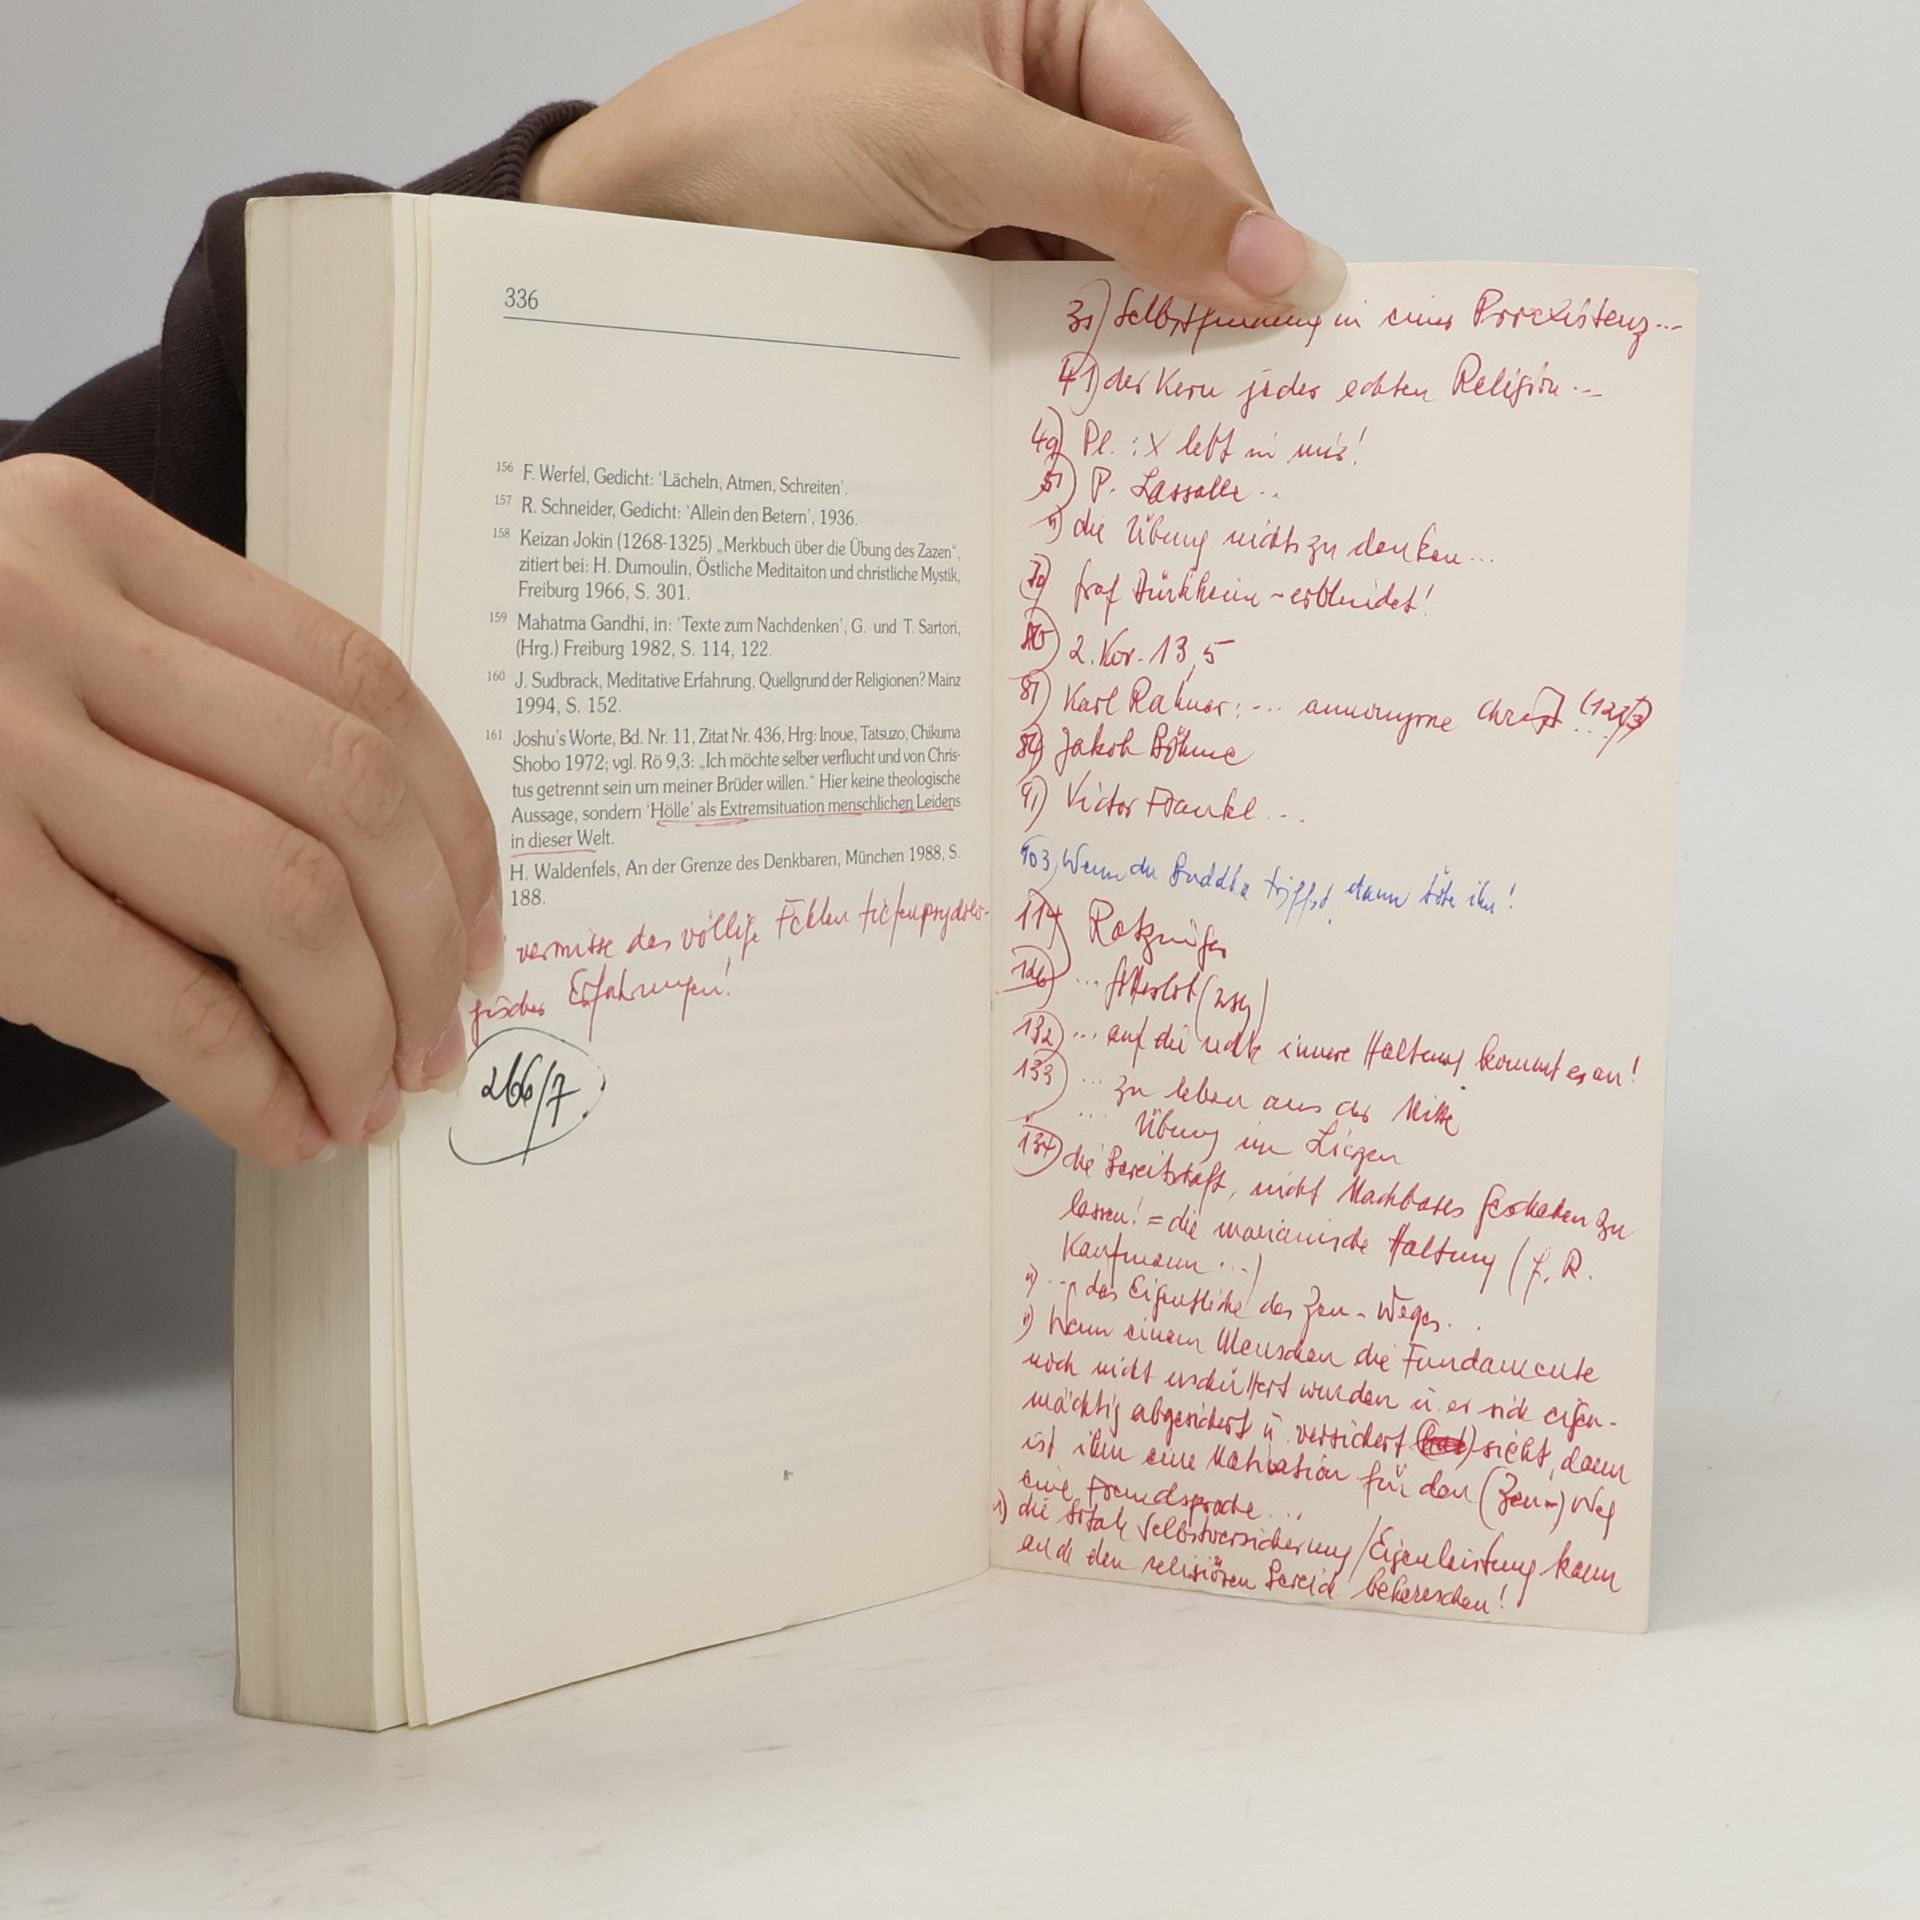 336
156 F. Werfel, Gedicht: 'Lächeln, Atmen, Schreiten'.
157 R. Schneider, Gedicht: 'Allein den Betern', 1936.
158 Keizan Jokin (1268-1325) „Merkbuch über die Übung des Zazen“,
zitiert bei: H. Dumoulin, Östliche Meditaiton und christliche Mystik,
Freiburg 1966, S. 301.
159 Mahatma Gandhi, in: 'Texte zum Nachdenken', G. und T. Sartori,
(Hrg.) Freiburg 1982, S. 114, 122.
160 J. Sudbrack, Meditative Erfahrung, Quellgrund der Religionen? Mainz
1994, S. 152.
161 Joshu's Worte, Bd. Nr. 11, Zitat Nr. 436, Hrg: Inoue, Tatsuzo, Chikuma
Shobo 1972; vgl. Rö 9,3: „Ich möchte selber verflucht und von Chris-
tus getrennt sein um meiner Brüder willen.“ Hier keine theologische
Aussage, sondern 'Hölle' als Extremsituation menschlichen Leidens
in dieser Welt.
H. Waldenfels, An der Grenze des Denkbaren, München 1988, S.
188.
vermisse das völlige Fehlen tiefenpsycholo-
gischer Erfahrungen!
266/7
Selbstfindung in einer Proexistenz...
41) der Kern jeder echten Religion...
49) Pl.: X lebt in mir!
51) P. Lassalle..
") die Übung nichts zu denken...
70) Graf Dürkheim - erblindet!
2. Kor. 13,5
81) Karl Rahner: ... annonyme Christ!
84) Jakob Böhme
91) Victor Frankl...
103) Wenn du Buddha triffst, dann töte ihn!
114) Ratzinger
...
132) ... auf die rechte innere Haltung kommt es an!
133) ... zu leben aus der Mitte
... Übung im Liegen
134) die Bereitschaft, nicht Machbares geschehen zu
lassen! = die marianische Haltung (F. R.
Kaufmann...)
") ... das Eigentliche des Zen-Weges...
") Wenn einem Menschen die Fundamente
noch nicht erschüttert wurden u. er sich eigen-
mächtig abgesichert u. versichert sieht, dann
ist ihm eine Motivation für den (Zen-) Weg
eine Fremdsprache...
") die totale Selbstversicherung/Eigenleistung kann
auch den religiösen Bereich beherrschen!